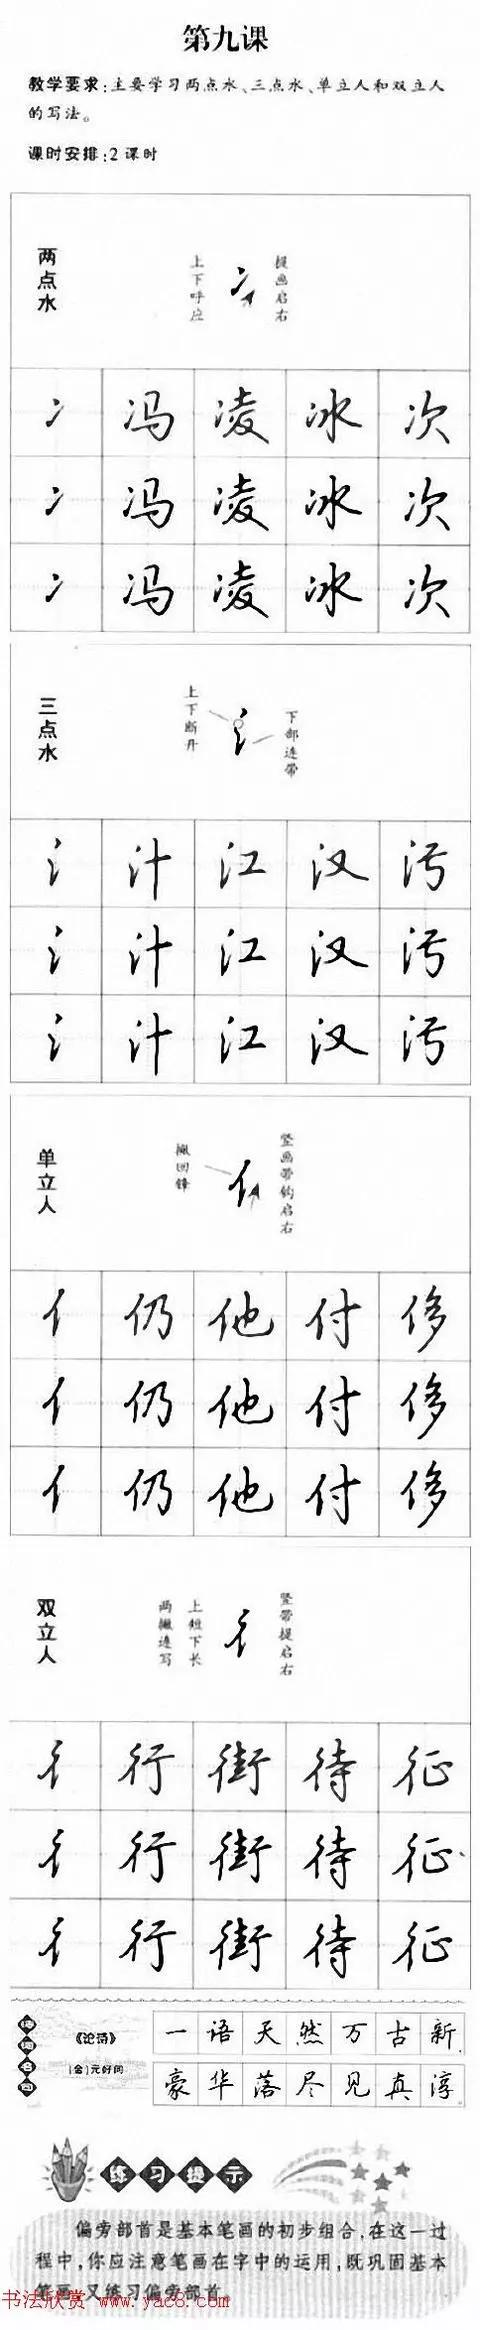 第九课
教学要求:主要学习两点水、三点水、单立人和双立人
的写法。
课时安排:2课时
两点水
上下呼应
提画启右
冫 冯 凌 冰 次
冫 冯 凌 冰 次
冫 冯 凌 冰 次
三点水
上下断开
下部连带
氵 汁 江 汉 污
氵 汁 江 汉 污
氵 汁 江 汉 污
单立人
撇回锋
竖画带钩启右
亻 仍 他 付 侈
亻 仍 他 付 侈
亻 仍 他 付 侈
双立人
两撇连写
上短下长
竖带提启右
彳 行 街 待 征
彳 行 街 待 征
彳 行 街 待 征
诗词名句
《论诗》
(金)元好问
一语天然万古新
豪华落尽见真淳
练习提示
偏旁部首是基本笔画的初步组合,在这一过
程中,你应注意笔画在字中的运用,既巩固基本
笔画,又练习偏旁部首。
书法欣赏 www.yac8.com